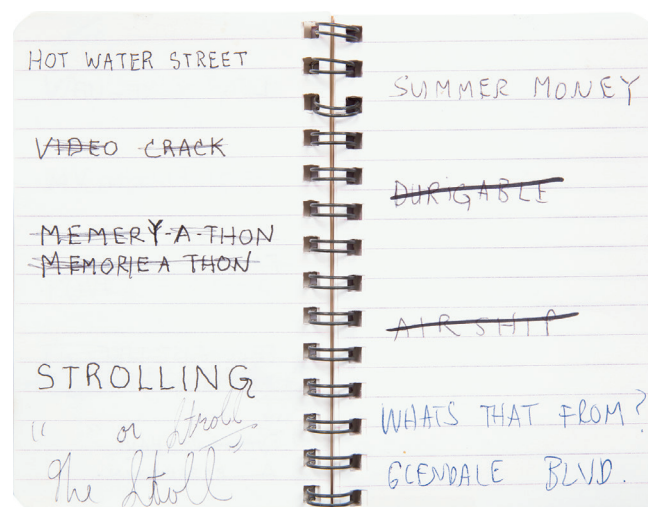 HOT WATER STREET
VIDEO CRACK
MEMERY-A-THON
MEMORIE A THON
STROLLING
" or Stroll
The Stroll "
SUMMER MONEY
DURIGABLE
AIRSHIP
WHATS THAT FROM?
GLENDALE BLVD.